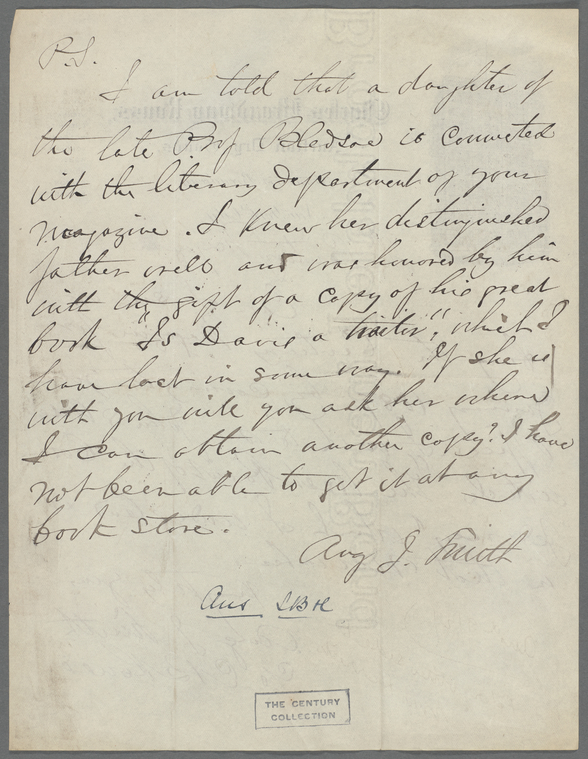 P.S.
I am told that a daughter of
the late Prof Bledsoe is connected
with the literary department of your
magazine. I knew her distinguished
father well and was honored by him
with the gift of a copy of his great
book "Is Davis a traitor", which I
have lost in some way. If she is
with you will you ask her where
I can obtain another copy? I have
not been able to get it at any
book store.
Aug J. Smith
Ans
THE CENTURY
COLLECTION